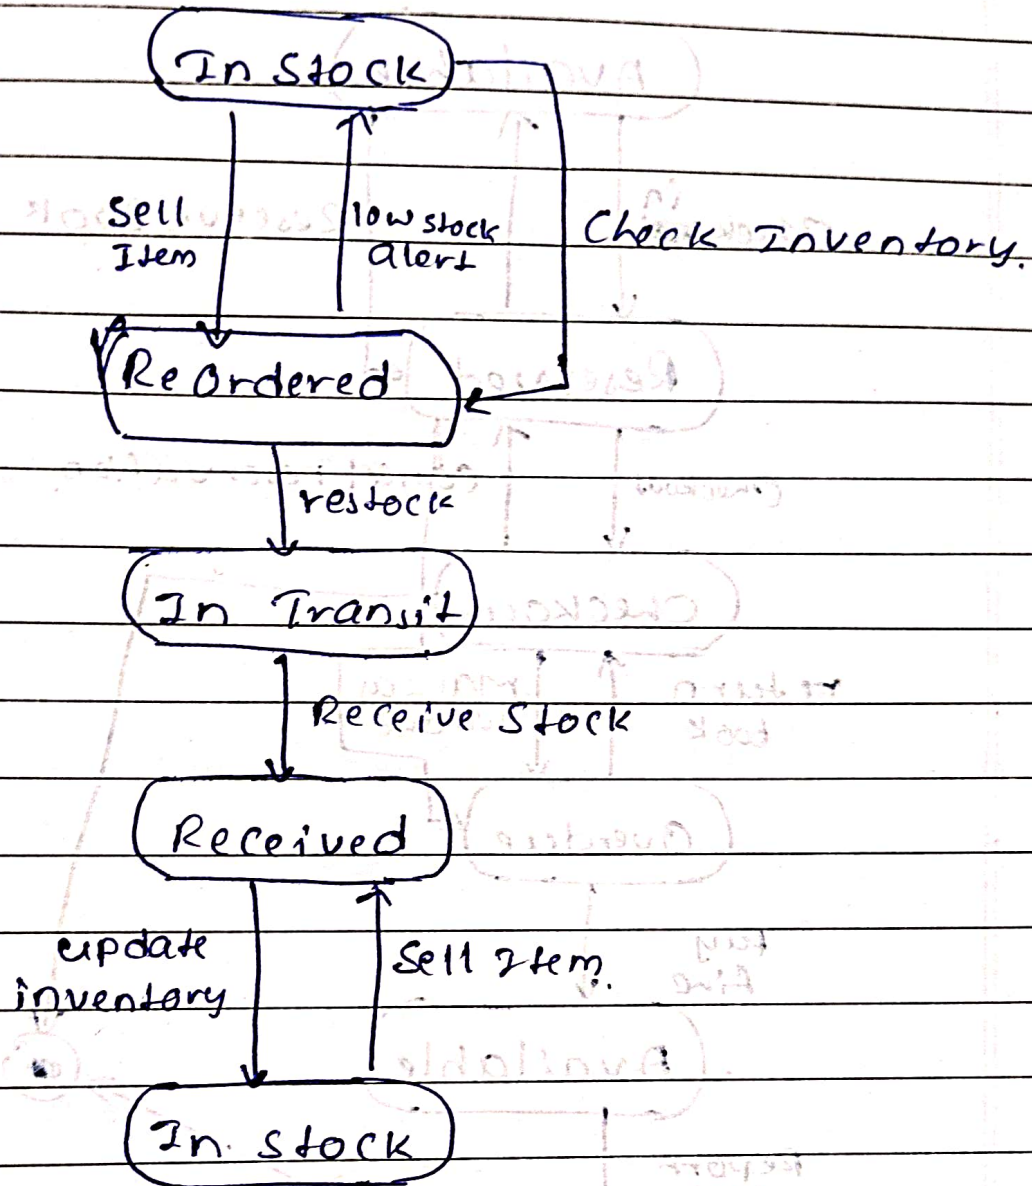 In Stock
Sell
Item
low stock
alert
Check Inventory.
ReOrdered
restock
In Transit
Receive Stock
Received
update
inventory
Sell Item.
In. stock